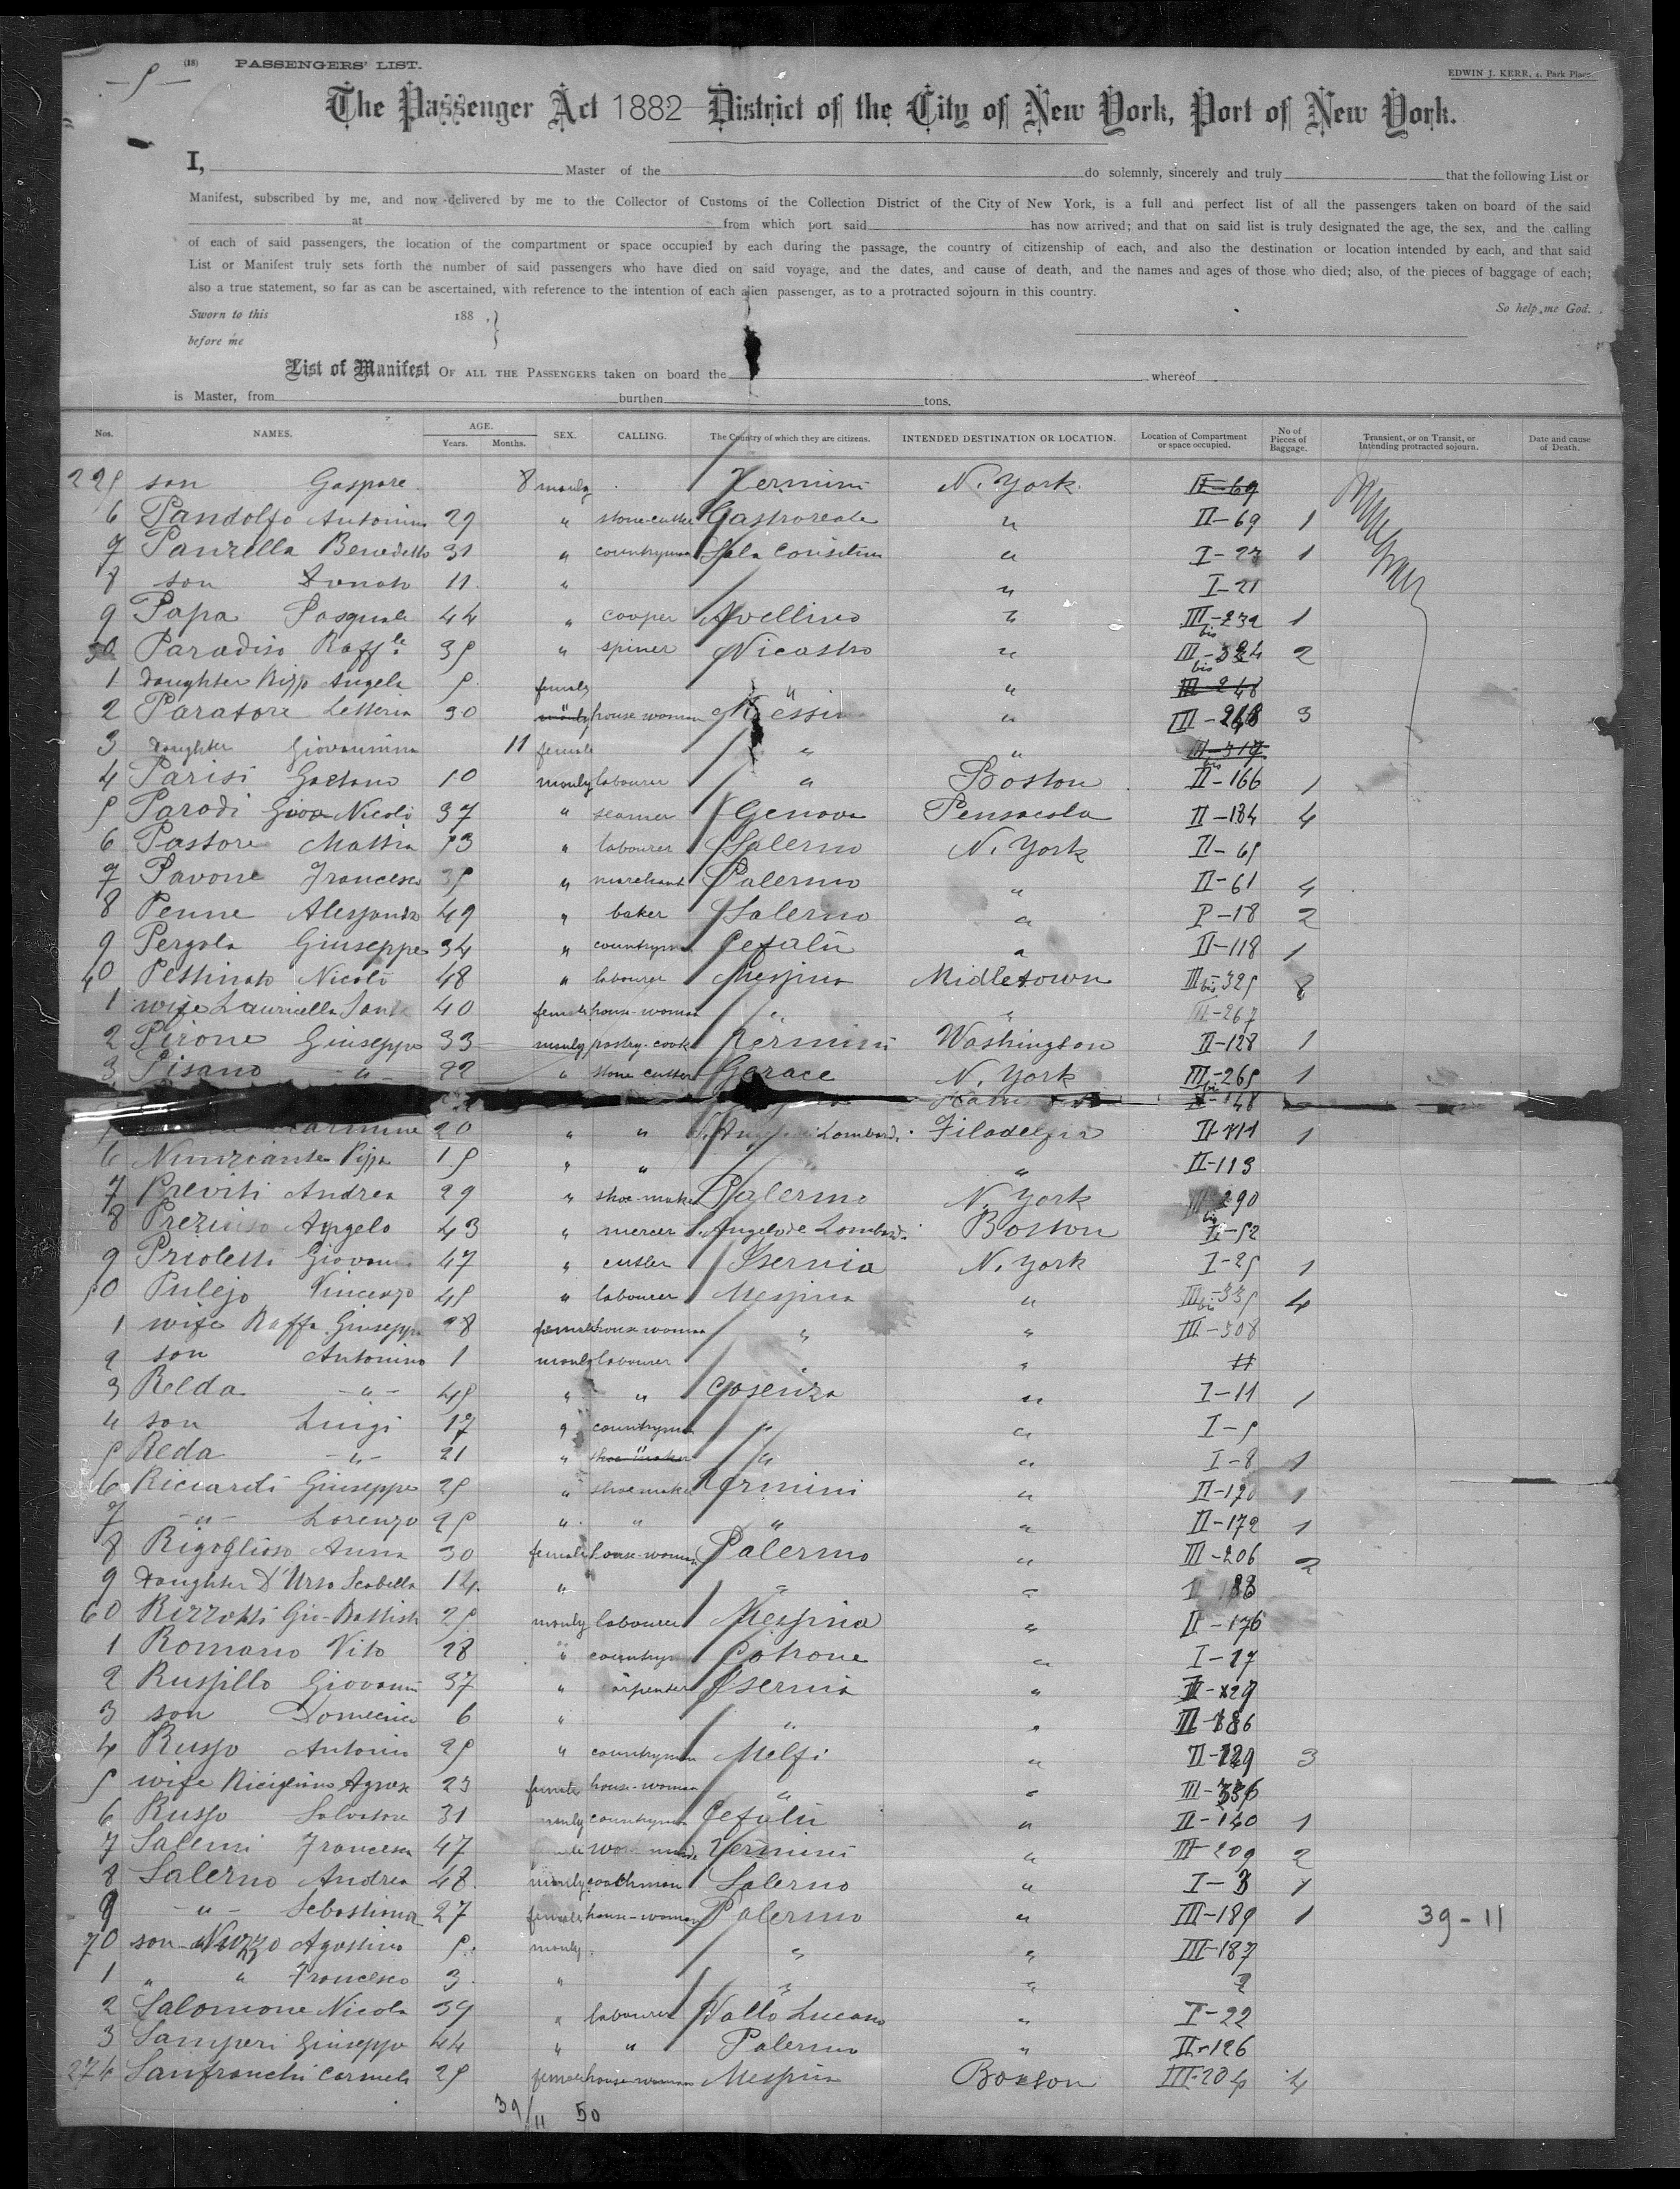 — 5 —
(18) PASSENGERS' LIST.
EDWIN J. KERR, 4, Park Place
The Passenger Act 1882 District of the City of New York, Port of New York.
I, Master of the do solemnly, sincerely and truly that the following List or
Manifest, subscribed by me, and now delivered by me to the Collector of Customs of the Collection District of the City of New York, is a full and perfect list of all the passengers taken on board of the said
at from which port said has now arrived; and that on said list is truly designated the age, the sex, and the calling
of each of said passengers, the location of the compartment or space occupied by each during the passage, the country of citizenship of each, and also the destination or location intended by each, and that said
List or Manifest truly sets forth the number of said passengers who have died on said voyage, and the dates, and cause of death, and the names and ages of those who died; also, of the pieces of baggage of each;
also a true statement, so far as can be ascertained, with reference to the intention of each alien passenger, as to a protracted sojourn in this country.
Sworn to this 188 . } So help me God.
before me
List of Manifest OF ALL THE PASSENGERS taken on board the whereof
is Master, from burthen tons.
Nos. NAMES. AGE. Years. Months. SEX. CALLING. The Country of which they are citizens. INTENDED DESTINATION OR LOCATION. Location of Compartment or space occupied. No of Pieces of Baggage. Transient, or on Transit, or Intending protracted sojourn. Date and cause of Death.
225 son Gaspare 8 manly Termini N. York. II-69
6 Pandolfo Antonino 29 " stone-cutter Castroreale " II-69 1
7 Panzella Benedetto 31 " countryman Sala Consilina " I-27 1
8 son Donato 11 " " I-21
9 Papa Pasquale 44 " cooper Avellino " III-232 bis 1
30 Paradiso Raff.le 35 " spiner Nicastro " III-324 bis 2
1 daughter Rizzo Angela 5 female " " III-248
2 Paratore Letteria 30 house woman Messina " III-248 3
3 daughter Giovannina 11 female " " II-317
4 Parisi Gaetano 10 manly labourer " Boston II-166 1
5 Parodi Giov Nicolò 37 " seamer Genova Pensacola II-184 4
6 Pastore Mattia 73 " labourer Salerno N. York II-65
7 Pavone Francesco 35 " merchant Palermo " II-61 4
8 Penne Alessandro 49 " baker Salerno " P-18 2
9 Pergola Giuseppe 34 " countryman Cefalù " II-118 1
40 Pettinato Nicolò 48 " labourer Messina Midletown III-325 bis 8
1 wife Lauricella Santa 40 female house-woman " " III-267
2 Pirone Giuseppe 33 manly pastry-cook Termini Washington II-128 1
3 Pisano -"- 22 " stone cutter Gerace N. York III-265 bis 1
148
Carmine 20 " " S. Angelo de Lombardi Filadelfia II-111 1
6 Nunziante Pizza 15 " " " " II-113
7 Previti Andrea 29 " shoe-maker Palermo N. York III-290 bis
8 Prezioso Angelo 43 " mercer S. Angelo de Lombardi Boston II-52
9 Prioletti Giovanni 47 " cutler Isernia N. York I-25 1
50 Pulejo Vincenzo 45 " labourer Messina " III-335 bis 4
1 wife Raffa Giuseppa 28 female house woman " " III-308
2 son Antonino 1 manly labourer " "
3 Relda -"- 45 " " Cosenza " I-11 1
4 son Luigi 17 " countryman " " I-5
5 Reda -"- 21 " shoe-maker " " I-8 1
6 Ricciardi Giuseppe 25 " shoemaker Termini " II-170 1
7 -"- Lorenzo 25 " " " " II-172 1
8 Rigoglioso Anna 30 female house-woman Palermo " III-206 2
9 daughter D'Urso Isabella 14 " " " 188
60 Rizzotti Gio-Battista 25 manly labourer Messina " II-176
1 Romano Vito 28 " countryman Cotrone " I-17
2 Russillo Giovanni 37 " carpenter Isernia " II-129
3 son Domenico 6 " " " III-186
4 Russo Antonio 25 " countryman Melfi " II-129 3
5 wife Riciglino Agnese 23 female house-woman " " III-336
6 Russo Salvatore 31 manly countryman Cefalù " II-140 1
7 Salemi Francesca 47 female Termini " III-209 2
8 Salerno Andrea 48 manly coachman Salerno " I-3 1
9 -"- Sebastiana 27 female house-woman Palermo " III-189 1 39-11
70 son Nuzzo Agostino 5 manly " " III-187
1 " " Francesco 3 " " "
2 Salomone Nicola 39 " labourer Vallo Lucano " I-22
3 Samperi Giuseppe 44 " " Palermo " II-126
274 Sanfranchi Carmela 25 female house-woman Messina Boston III-204 4
39/11 50